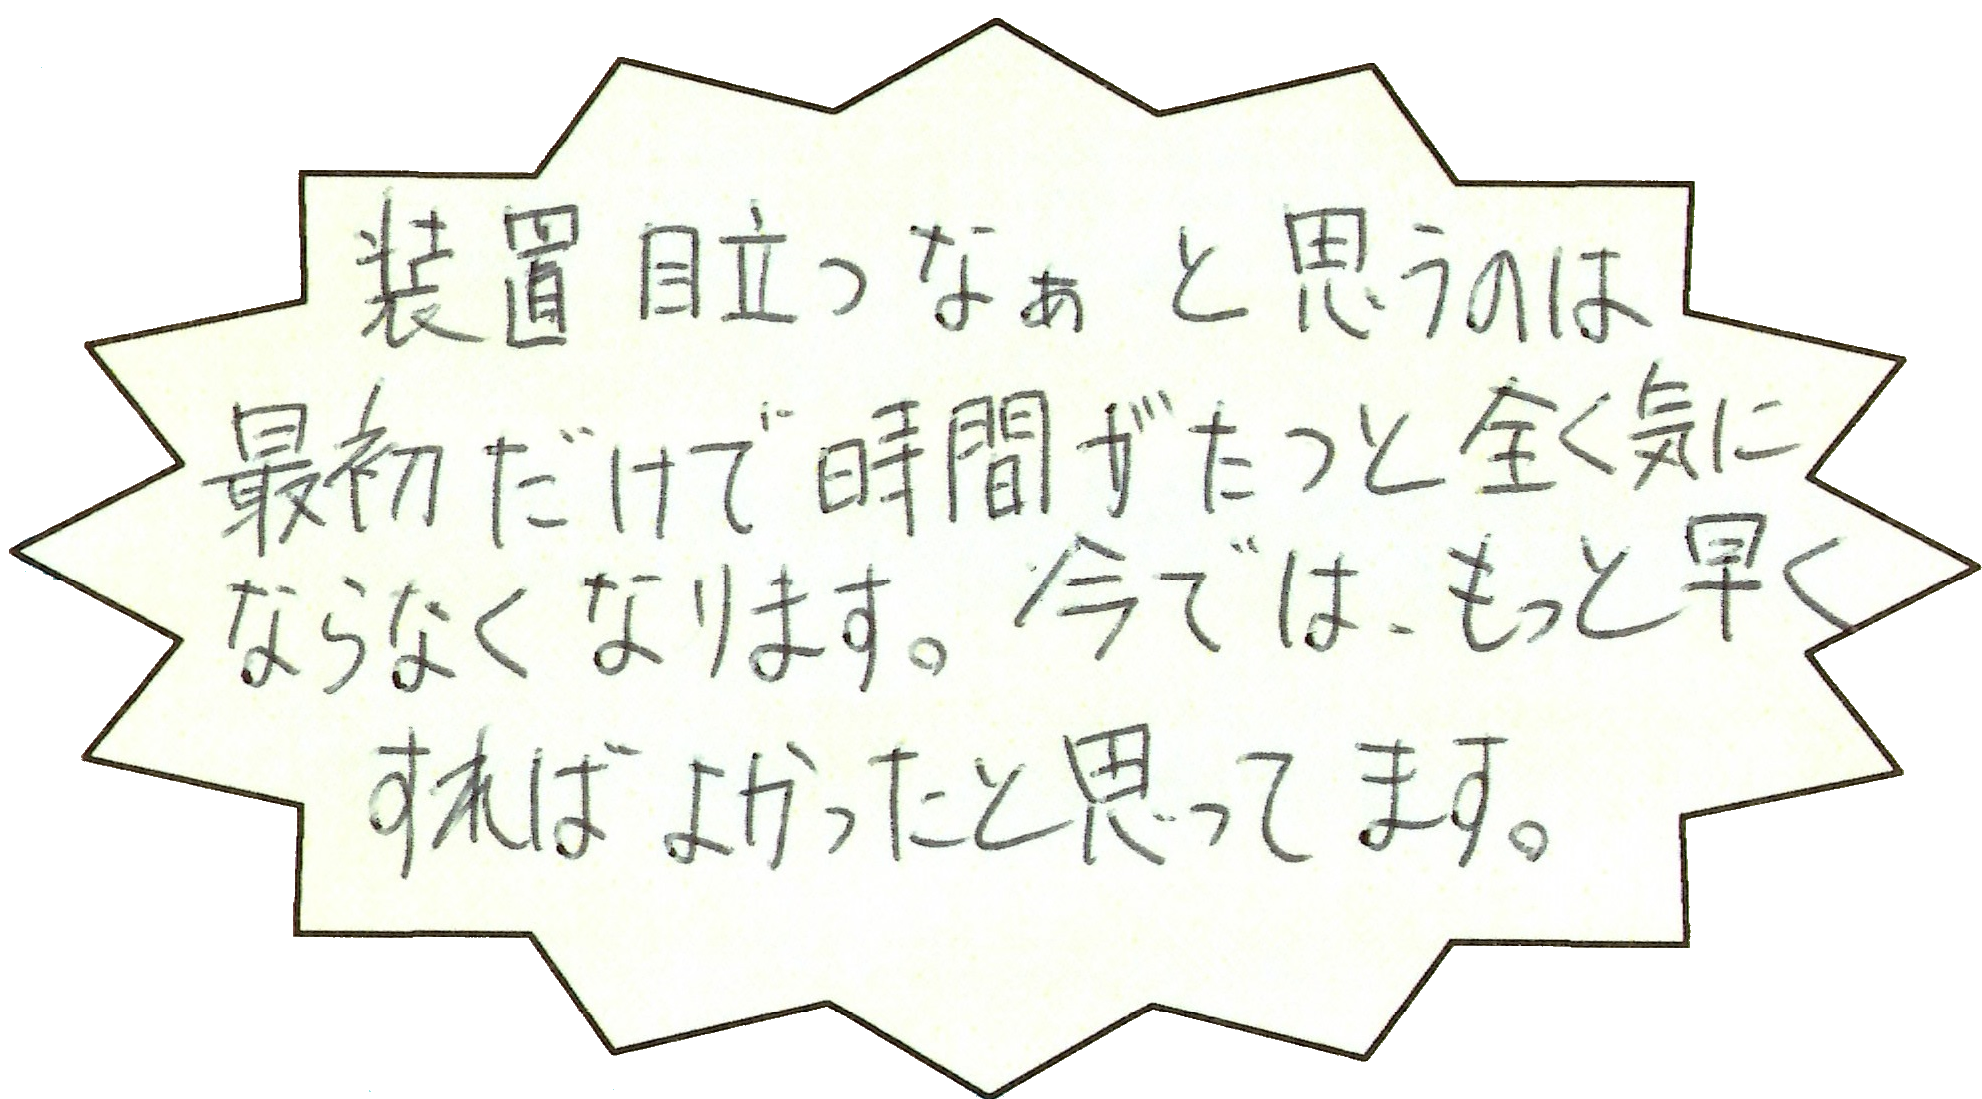 装置目立つなぁと思うのは
最初だけで時間がたつと全く気に
ならなくなります。今では、もっと早く
すればよかったと思ってます。